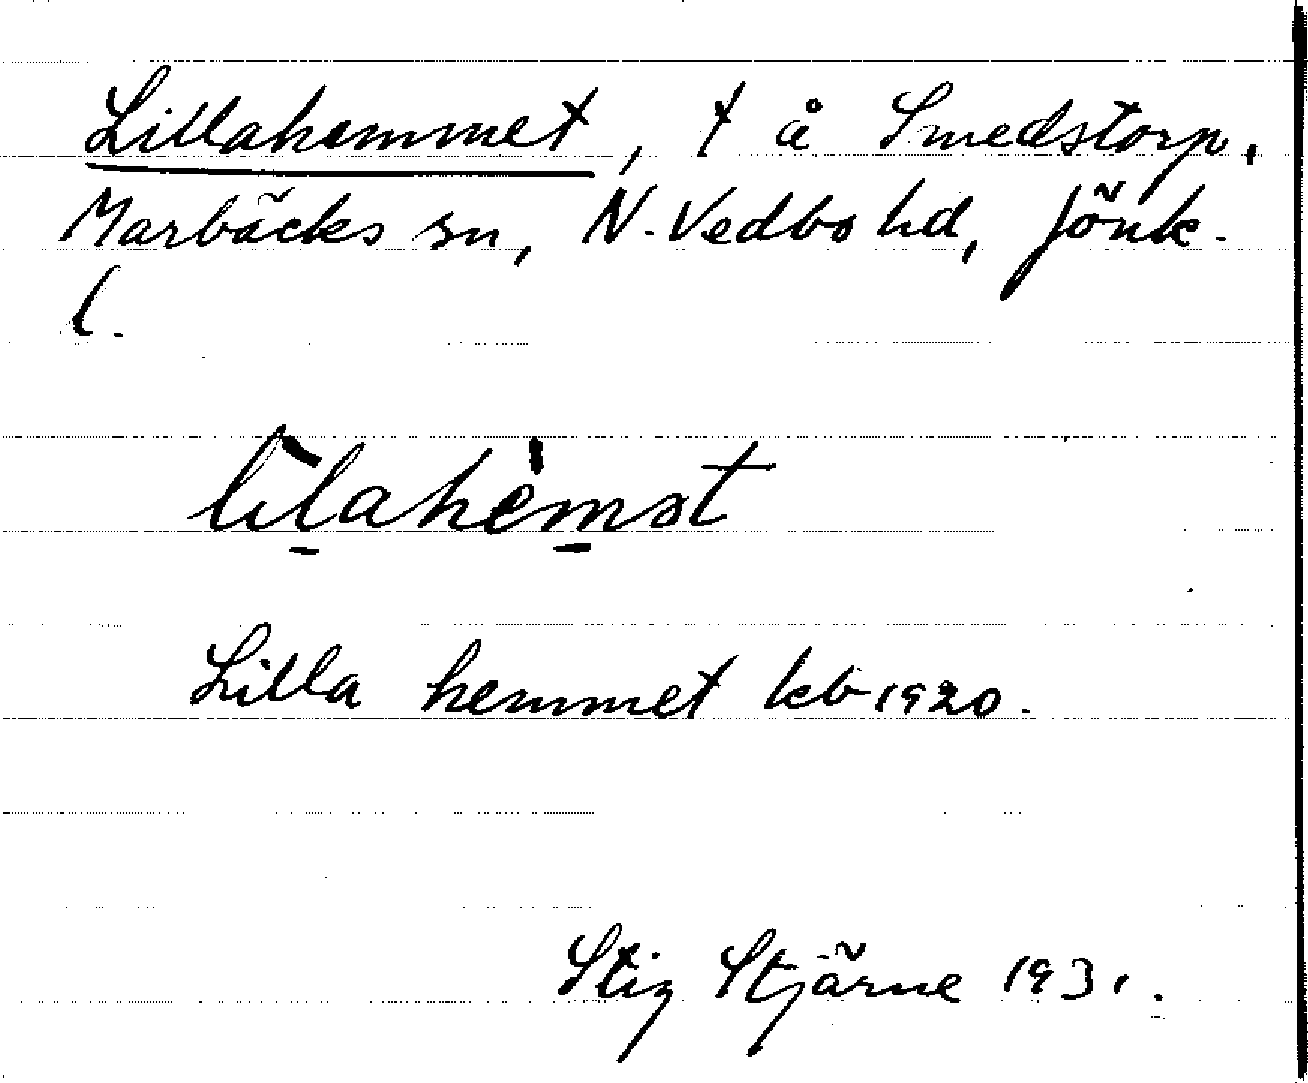 Lillahemmet, t å Smedstorp.
Marbäcks sn, N. Vedbo hd, Jönk.
l.
lìlahèmət
Lilla hemmet kb 1920.
Stig Stjärne 1931.